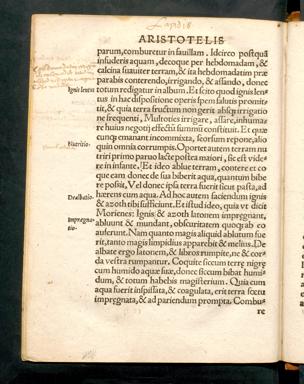 Lapidis
ARISTOTELIS
parum, comburetur in fauillam. Idcirco postquã
infuderis aquam, decoque per hebdomadam, &
calcina suauiter terram, & ita hebdomadatim præ
parabis conterendo, irrigando, & assando, donec
Ignis lentus
totum redigatur in album. Et scito quod ignis len-
tus in hac dispositione operis spem salutis promit-
tit, & quia terra fructum non gerit absq; irrigatio
ne frequenti, Multoties irrigare, assare, inhuma-
re huius negotij effectũ summũ constituit. Et quæ
cunq; emanant inconmixta, seorsum repone, alio
Nutritio.
quin omnia corrumpis. Oportet autem terram nu
triri primo paruo lacte postea maiori, sic est vide-
re in infante. Et ideo ablue terram, contere et co-
que eam donec de sua biberit aqua, quantum bibe
re possit, Vel donec ipsa terra fuerit sicut pasta, ad
Dealbatio.
hærens cum aqua. Ad hoc autem faciendum ignis
& azoth tibi sufficiunt. Et istud ideo, quia vt dicit
Impregna-
tio.
Morienes: Ignis & azoth latonem impregnant,
abluunt & mundant, obscuritatem quoq; ab eo
auferunt. Nam quanto magis aliquid ablutum fue
rit, tanto magis limpidius apparebit & melius. De
albate ergo latonem, & libros rumpite, ne & cor-
da vestra rumpantur. Coquite siccum terrę nigrę
cum humido aquæ suæ, donec siccum bibat humi-
dum, & totum habebis magisterium. Quia cum
aqua fuerit inspissata, & coagulata, erit terra foetu
impregnata, & ad pariendum prompta. Combus
re